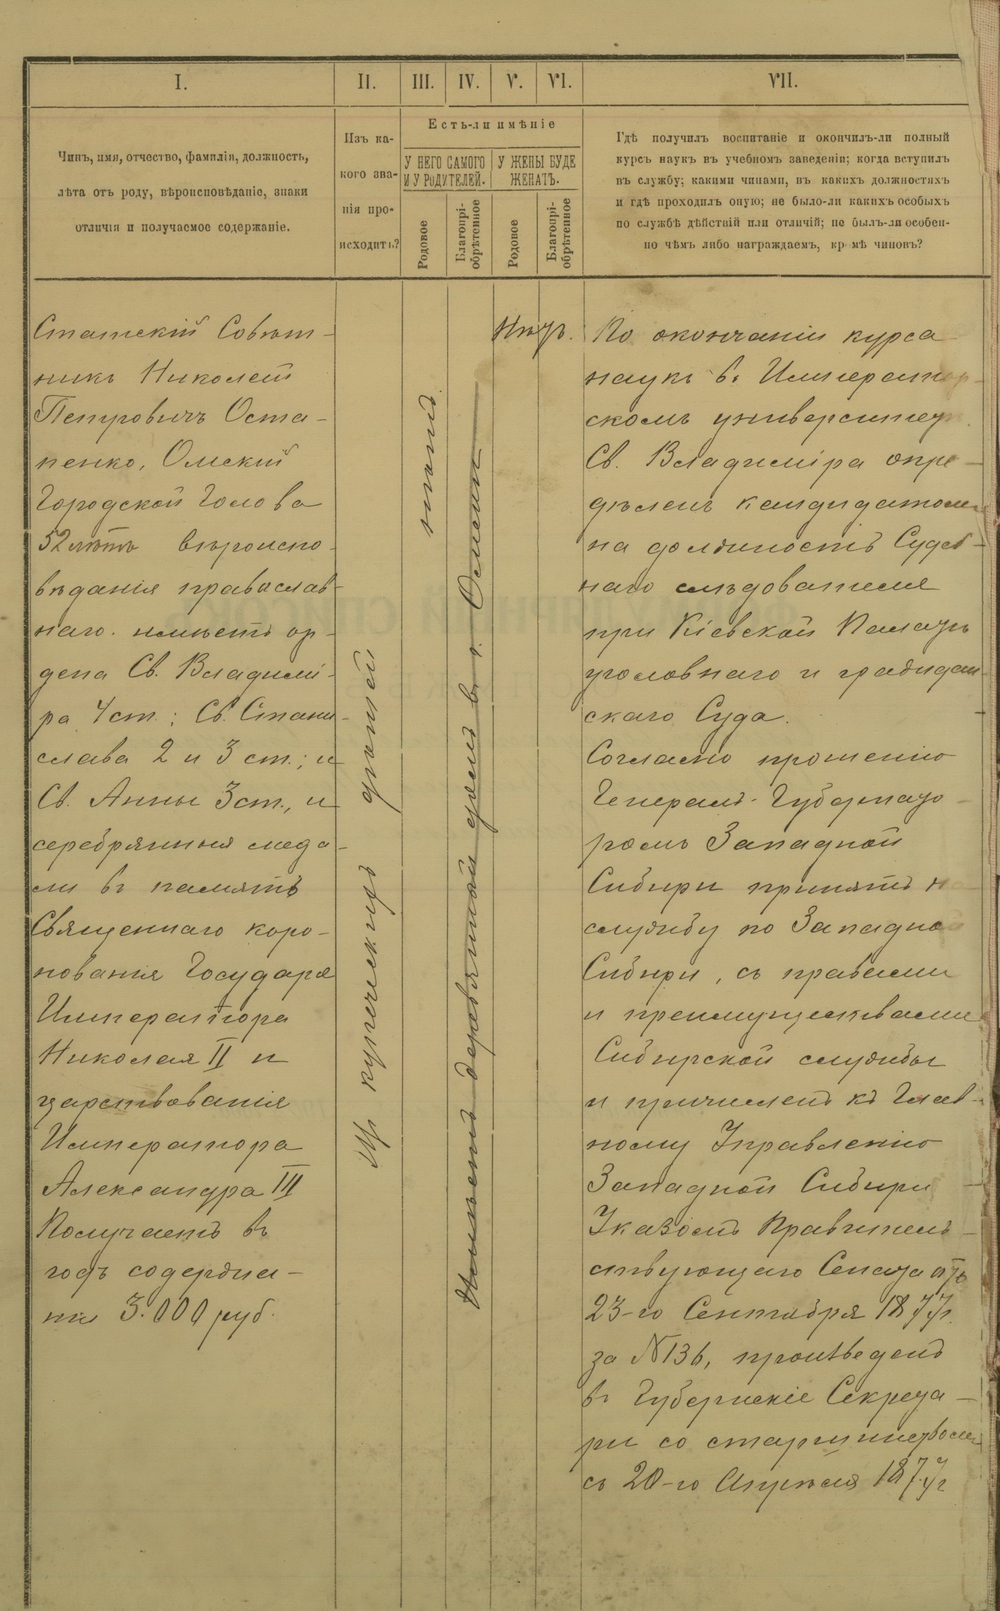 I.
II.
III.
IV.
V.
VI.
VII.
Чинъ, имя, отчество, фамилія, должность,
лѣта отъ роду, вѣроисповѣданіе, знаки
отличія и получаемое содержаніе.
Изъ ка-
кого зва-
нія про-
исходитъ?
Есть-ли имѣніе
У НЕГО САМОГО
И У РОДИТЕЛЕЙ.
У ЖЕНЫ БУДЕ
ЖЕНАТЪ.
Родовое
Благопрі-
обрѣтенное
Родовое
Благопрі-
обрѣтенное
Гдѣ получилъ воспитаніе и окончилъ-ли полный
курсъ наукъ въ учебномъ заведеніи; когда вступилъ
въ службу; какими чинами, въ какихъ должностяхъ
и гдѣ проходилъ оную; не было-ли какихъ особыхъ
по службѣ дѣйствій или отличій; не былъ-ли особен-
но чѣмъ либо награждаемъ, кромѣ чиновъ?
Статскій Совѣт-
никъ Николай
Петровичъ Оста-
пенко, Омскій
Городской Голова
52 лѣтъ вѣроиспо-
вѣданія православ-
наго. имѣетъ ор-
дена Св. Владимі-
ра 4 ст.; Св. Стани-
слава 2 и 3 ст.; и
Св. Анны 3 ст., и
серебрянныя меда-
ли въ память
Священнаго коро-
нованія Государя
Императора
Николая II и
царствованія
Императора
Александра III
Получаетъ въ
годъ содержа-
нія 3.000 руб.
Изъ купеческихъ дѣтей
Имѣетъ деревянный домъ въ г. Омскѣ
Нѣтъ.
По окончаніи курса
наукъ въ Император-
скомъ университетѣ
Св. Владиміра опре-
дѣленъ кандидатомъ
на должность Судеб-
наго слѣдователя
при Кіевской Палатѣ
уголовнаго и граждан-
скаго Суда.
Согласно прошенію
Генералъ-Губернато-
ромъ Западной
Сибири принятъ на
службу по Западной
Сибири, съ правами
и преимуществами
Сибирской службы
и причисленъ къ Глав-
ному Управленію
Западной Сибири
Указомъ Правитель-
ствующаго Сената отъ
23-го Сентября 1877 г.
за N 136, произведенъ
въ Губернскіе Секрета-
ри со старшинствомъ
съ 20-го Апрѣля 1877 г